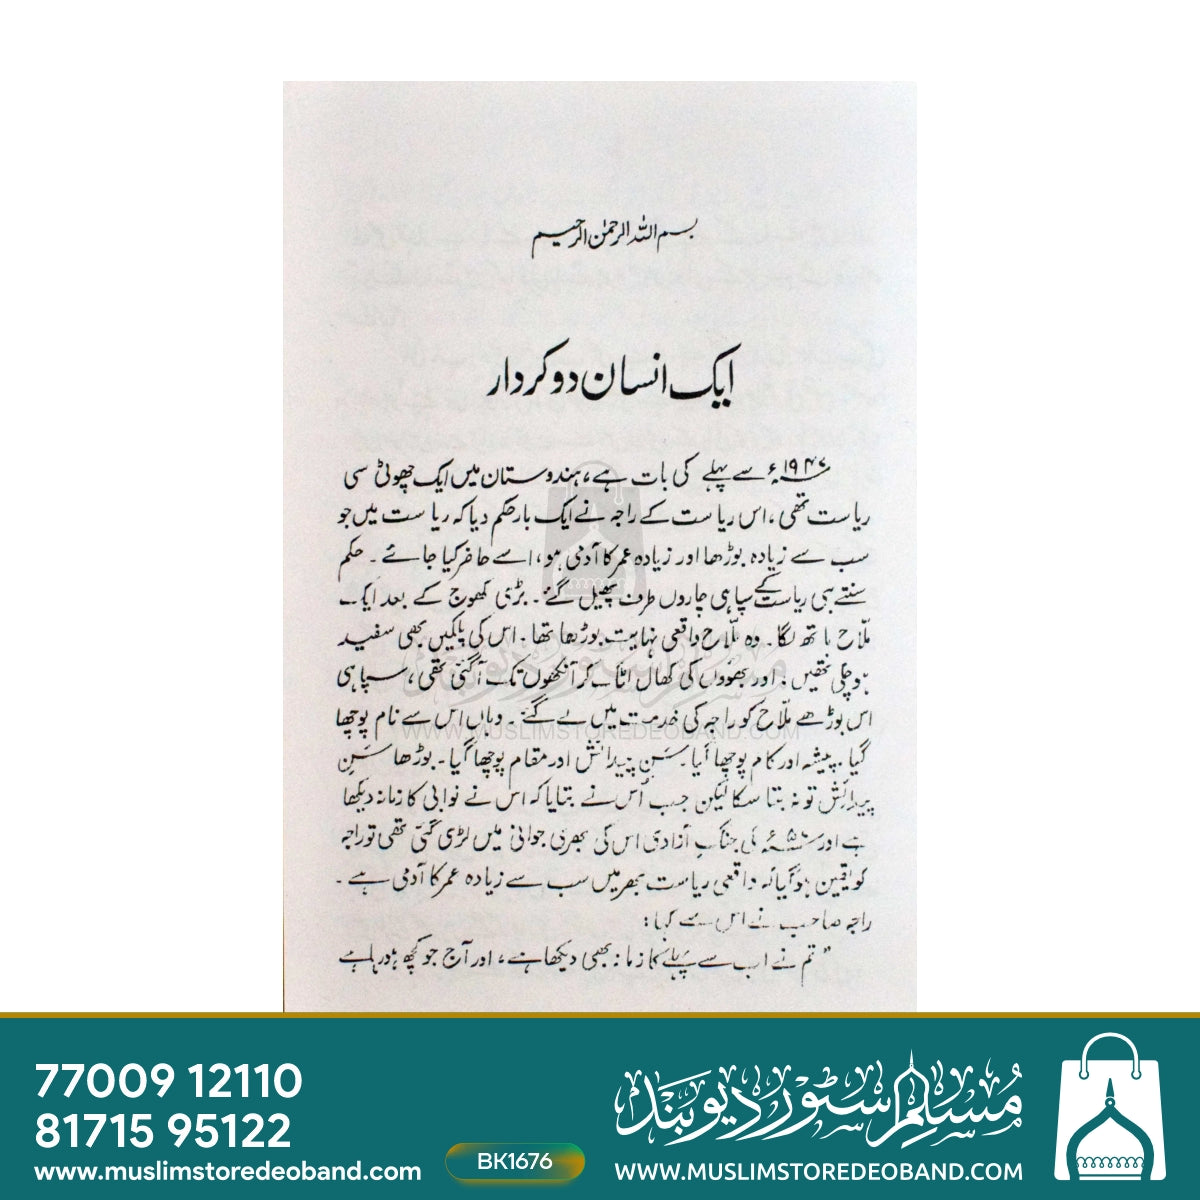 بسم اللہ الرحمٰن الرحیم
ایک انسان دو کردار
۱۹۴۷ء سے پہلے کی بات ہے، ہندوستان میں ایک چھوٹی سی
ریاست تھی، اس ریاست کے راجہ نے ایک بار حکم دیا کہ ریاست میں جو
سب سے زیادہ بوڑھا اور زیادہ عمر کا آدمی ہو، اسے حاضر کیا جائے۔ حکم
سنتے ہی ریاست کے سپاہی چاروں طرف پھیل گئے۔ بڑی کھوج کے بعد ایک
ملّاح ہاتھ لگا۔ وہ ملّاح واقعی نہایت بوڑھا تھا۔ اس کی پلکیں بھی سفید
ہو چلی تھیں۔ اور بھَووں کی کھال لٹک کر آنکھوں تک آ گئی تھی، سپاہی
اس بوڑھے ملّاح کو راجہ کی خدمت میں لے گئے۔ وہاں اس سے نام پوچھا
گیا۔ پیشہ اور کام پوچھا گیا۔ سَنِ پیدائش اور مقام پوچھا گیا۔ بوڑھا سَنِ
پیدائش تو نہ بتا سکا لیکن جب اُس نے بتایا کہ اس نے نوابی کا زمانہ دیکھا
ہے اور ۵۷ء کی جنگِ آزادی اس کی بھری جوانی میں لڑی گئی تھی تو راجہ
کو یقین ہو گیا کہ واقعی ریاست بھر میں سب سے زیادہ عمر کا آدمی ہے۔
راجہ صاحب نے اس سے کہا:
"تم نے اب سے پہلے کا زمانہ بھی دیکھا ہے، اور آج جو کچھ ہو رہا ہے
WWW.MUSLIMSTOREDEOBAND.COM
77009 12110
81715 95122
www.muslimstoredeoband.com
BK1676
مُسلم سٹور دیوبند
WWW.MUSLIMSTOREDEOBAND.COM